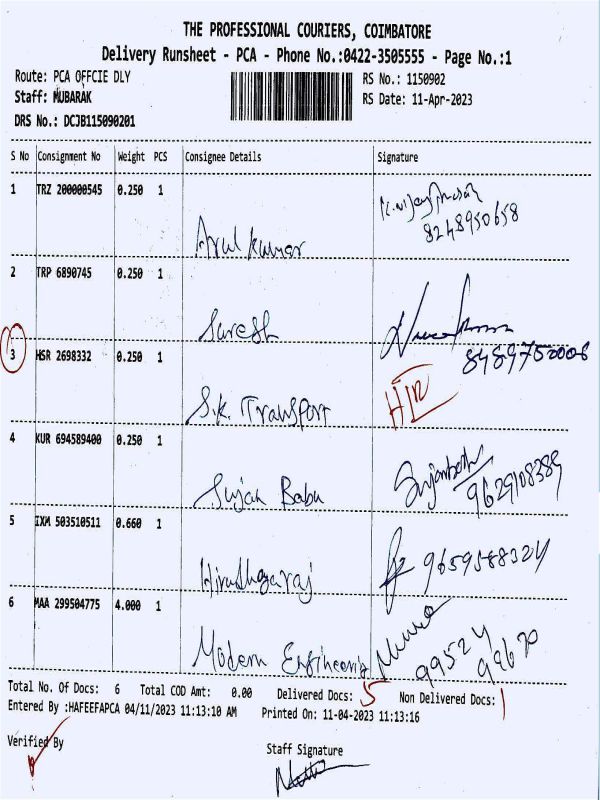 THE PROFESSIONAL COURIERS, COIMBATORE
Delivery Runsheet - PCA - Phone No.:0422-3505555 - Page No.:1
Route: PCA OFFCIE DLY RS No.: 1150902
Staff: MUBARAK RS Date: 11-Apr-2023
DRS No.: DCJB115090201
S No Consignment No Weight PCS Consignee Details Signature
1 TRZ 200000545 0.250 1
8248950658
Arul kumar
2 TRP 6890745 0.250 1
Suresh
3 HSR 2698332 0.250 1 8489750006
S.K. Transport
4 KUR 694589400 0.250 1
Sujan Babu 9629108389
5 IXM 503510511 0.660 1
9659588324
6 MAA 299504775 4.000 1
Modern Engineering 99524 99670
Total No. Of Docs: 6 Total COD Amt: 0.00 Delivered Docs: 5 Non Delivered Docs: 1
Entered By :HAFEEFAPCA 04/11/2023 11:13:10 AM Printed On: 11-04-2023 11:13:16
Verified By Staff Signature